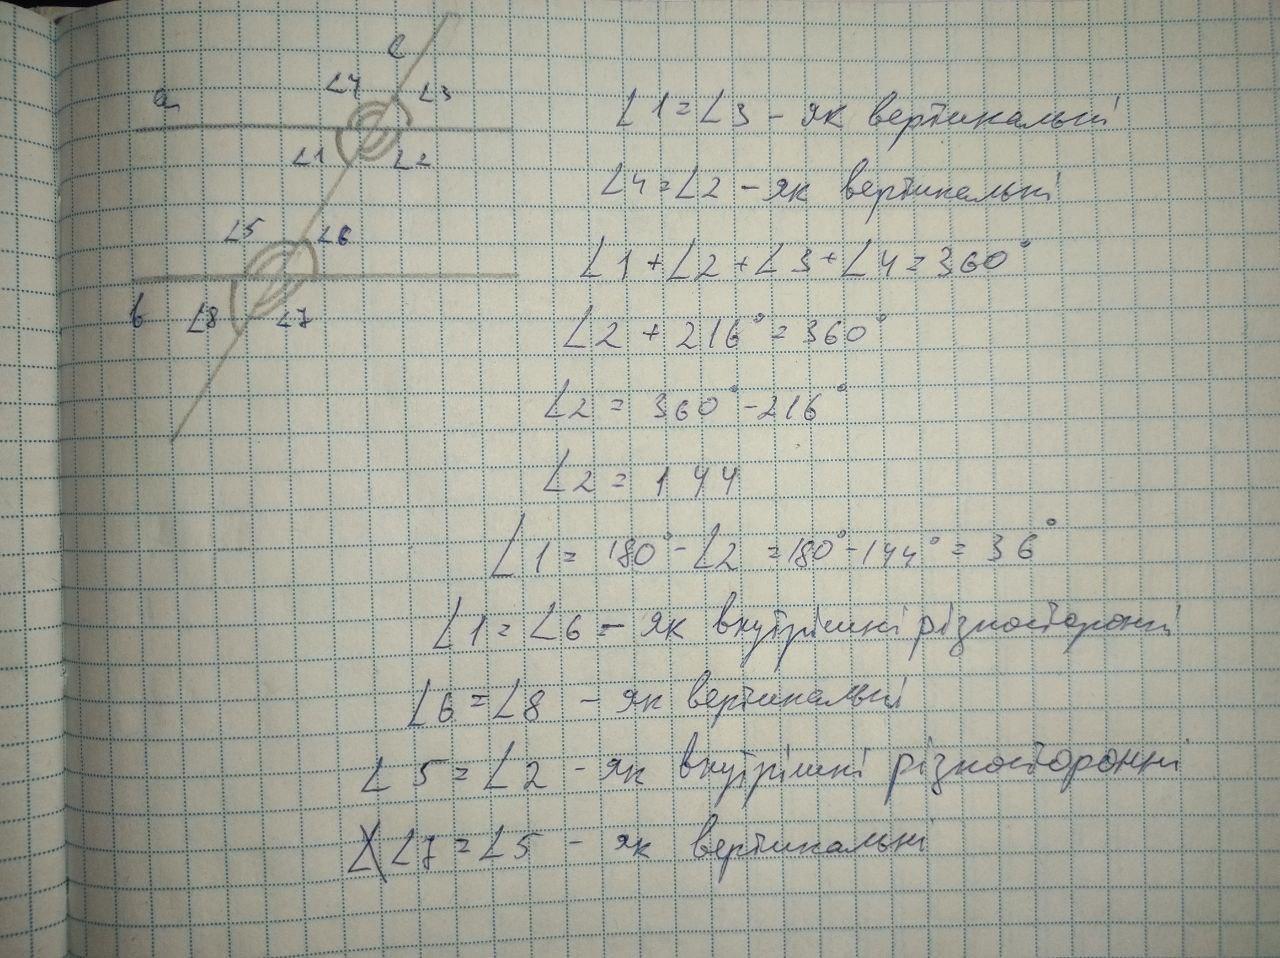 c
∠4 ∠3
a
∠1 ∠2
∠5 ∠6
b ∠8 ∠7
∠1 = ∠3 - як вертикальні
∠4 = ∠2 - як вертикальні
∠1 + ∠2 + ∠3 + ∠4 = 360°
∠2 + 216° = 360°
∠2 = 360° - 216°
∠2 = 144
∠1 = 180° - ∠2 = 180° - 144° = 36°
∠1 = ∠6 - як внутрішні різносторонні
∠6 = ∠8 - як вертикальні
∠5 = ∠2 - як внутрішні різносторонні
∠7 = ∠5 - як вертикальні